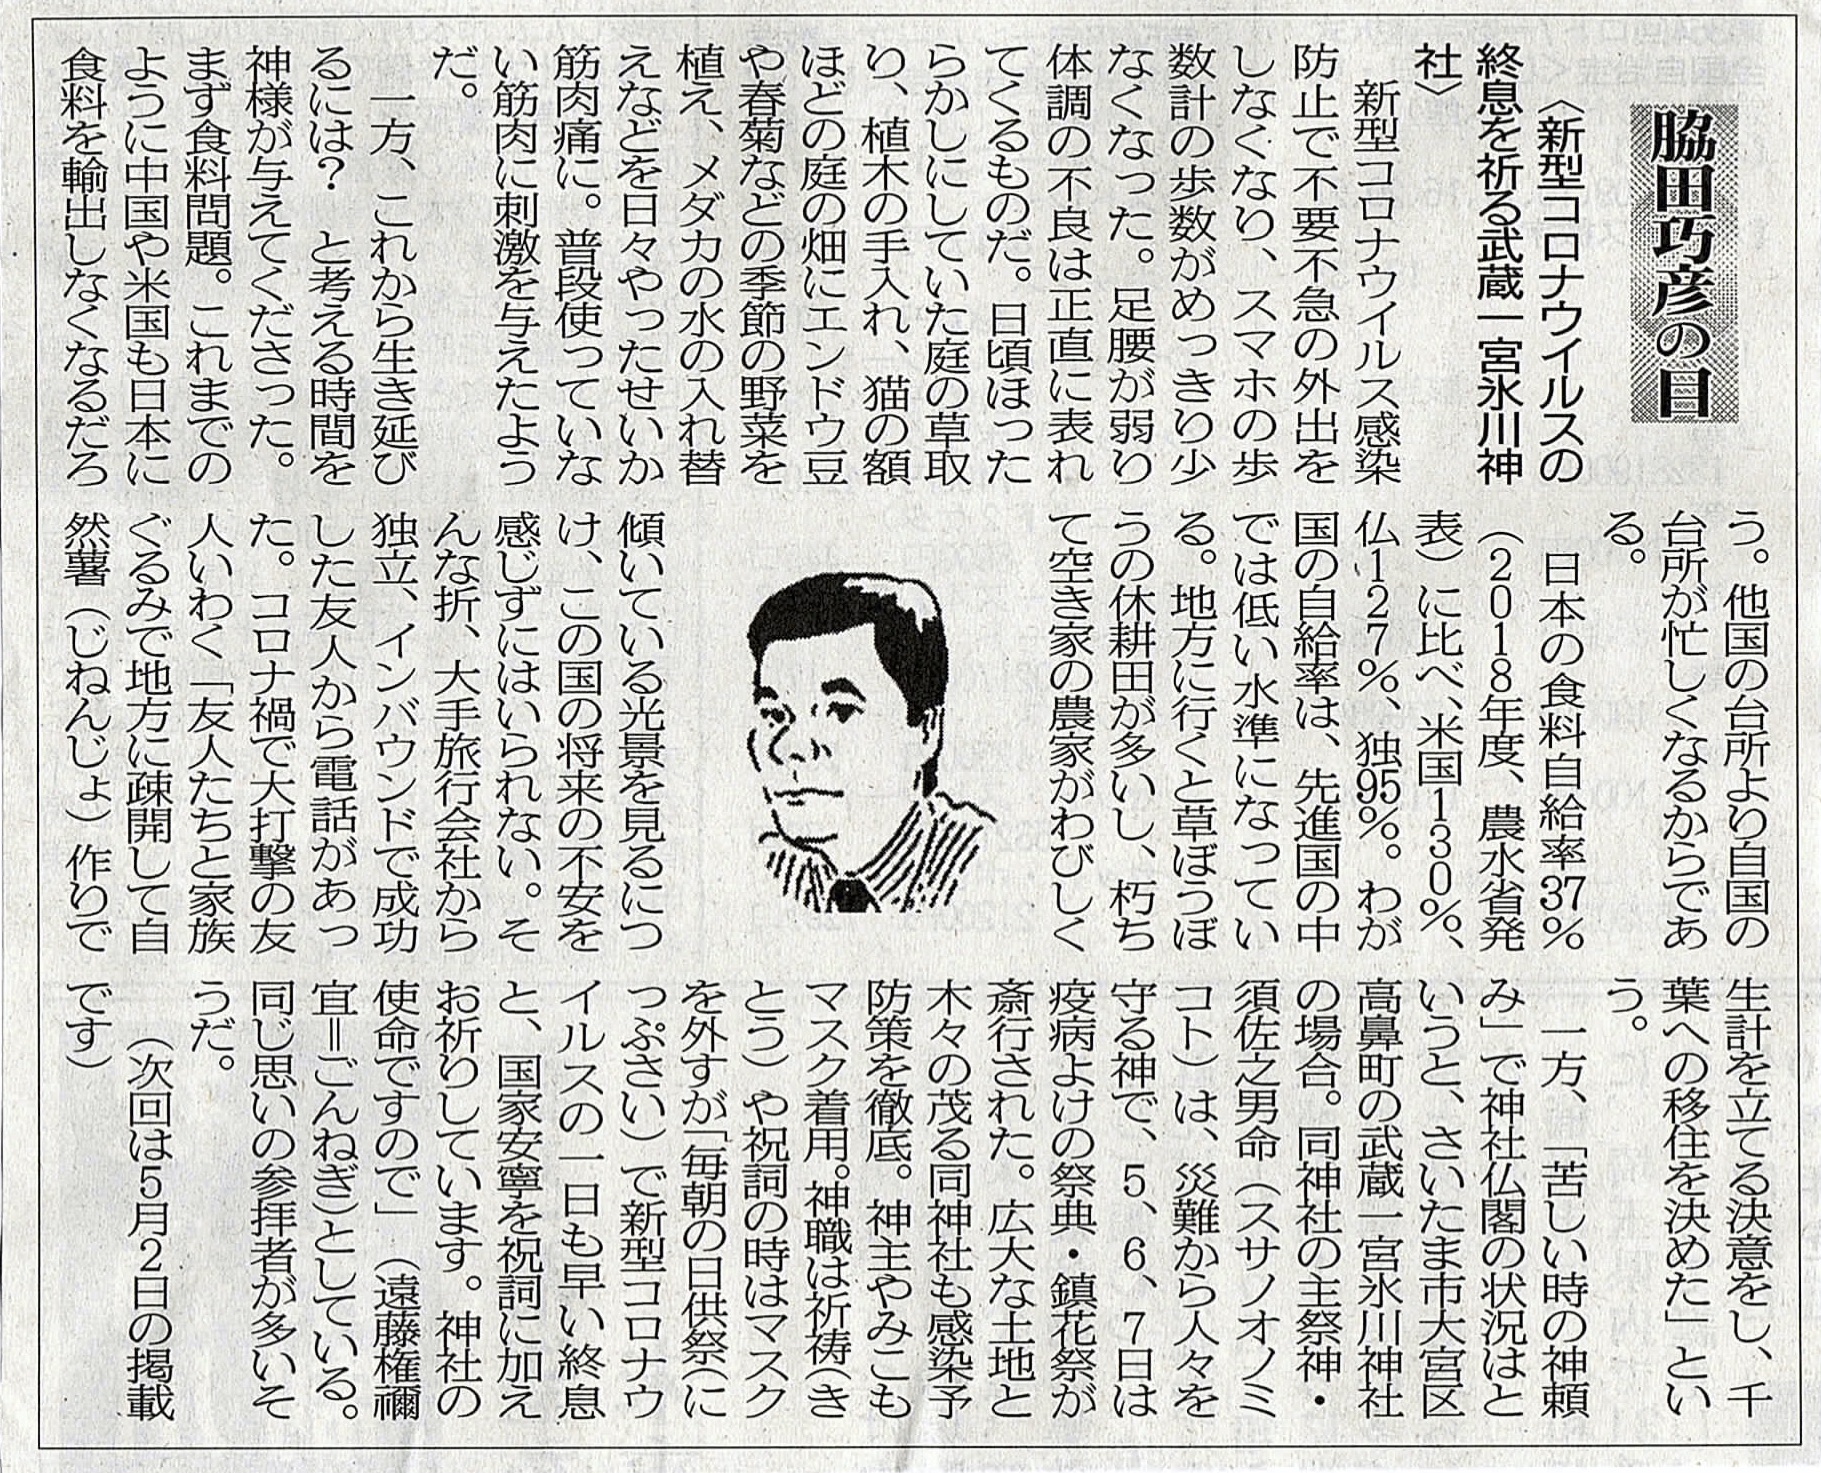 脇田巧彦の目
〈新型コロナウイルスの
終息を祈る武蔵一宮氷川神
社〉
新型コロナウイルス感染
防止で不要不急の外出を
しなくなり、スマホの歩
数計の歩数がめっきり少
なくなった。足腰が弱り
体調の不良は正直に表れ
てくるものだ。日頃ほった
らかしにしていた庭の草取
り、植木の手入れ、猫の額
ほどの庭の畑にエンドウ豆
や春菊などの季節の野菜を
植え、メダカの水の入れ替
えなどを日々やったせいか
筋肉痛に。普段使っていな
い筋肉に刺激を与えたよう
だ。
一方、これから生き延び
るには？　と考える時間を
神様が与えてくださった。
まず食料問題。これまでの
ように中国や米国も日本に
食料を輸出しなくなるだろ
う。他国の台所より自国の
台所が忙しくなるからであ
る。
日本の食料自給率37％
（2018年度、農水省発
表）に比べ、米国130％、
仏127％、独95％。わが
国の自給率は、先進国の中
では低い水準になってい
る。地方に行くと草ぼうぼ
うの休耕田が多いし、朽ち
て空き家の農家がわびしく
傾いている光景を見るにつ
け、この国の将来の不安を
感じずにはいられない。そ
んな折、大手旅行会社から
独立、インバウンドで成功
した友人から電話があっ
た。コロナ禍で大打撃の友
人いわく「友人たちと家族
ぐるみで地方に疎開して自
然薯（じねんじょ）作りで
生計を立てる決意をし、千
葉への移住を決めた」とい
う。
一方、「苦しい時の神頼
み」で神社仏閣の状況はと
いうと、さいたま市大宮区
高鼻町の武蔵一宮氷川神社
の場合。同神社の主祭神・
須佐之男命（スサノオノミ
コト）は、災難から人々を
守る神で、5、6、7日は
疫病よけの祭典・鎮花祭が
斎行された。広大な土地と
木々の茂る同神社も感染予
防策を徹底。神主やみこも
マスク着用。神職は祈祷（き
とう）や祝詞の時はマスク
を外すが「毎朝の日供祭（に
っぷさい）で新型コロナウ
イルスの一日も早い終息
と、国家安寧を祝詞に加え
お祈りしています。神社の
使命ですので」（遠藤権禰
宜＝ごんねぎ）としている。
同じ思いの参拝者が多いそ
うだ。
（次回は5月2日の掲載
です）